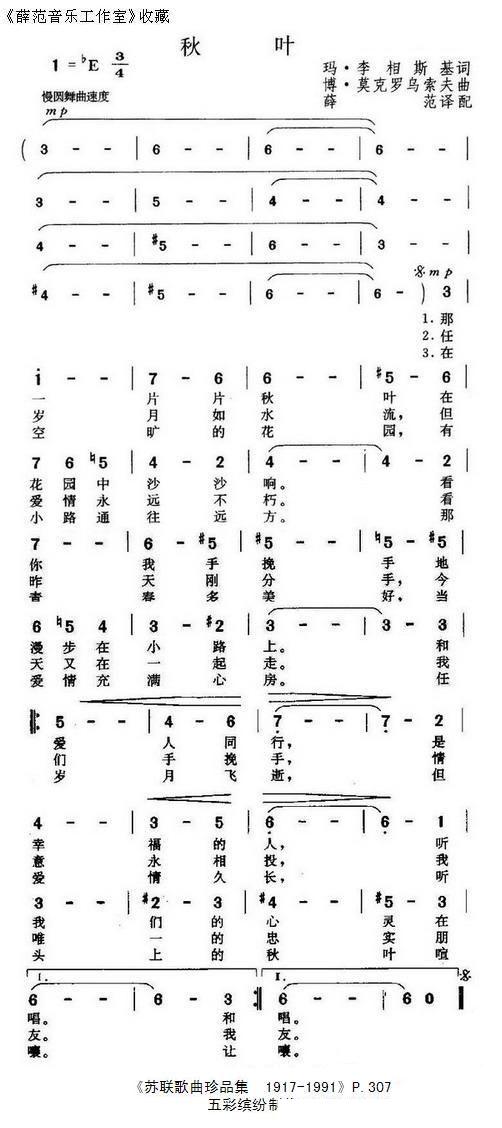 《薛范音乐工作室》收藏
秋 叶
1 = ♭E 3/4
玛·李相斯基词
博·莫克罗乌索夫曲
薛 范译配
慢圆舞曲速度
mp
( 3 - - | 6 - - | 6 - - | 6 - - |
3 - - | 5 - - | 4 - - | 4 - - |
4 - - | #5 - - | 6 - - | 3 - - |
𝄋 mp
#4 - - | #5 - - | 6 - - | 6 - ) 3 |
1. 那
2. 任
3. 在
1 - - | 7 - 6 | 6 - - | #5 - 6 |
一 片 片 秋 叶 在
岁 月 如 水 流，但
空 旷 的 花 园，有
7 6 ♮5 | 4 - 2 | 4 - - | 4 - 2 |
花 园 中 沙 沙 响。 看
爱 情 永 远 不 朽。 看
小 路 通 往 远 方。 那
7 - - | 6 - #5 | #5 - - | ♮5 - #5 |
你 我 手 挽 手 地
昨 天 刚 分 手，今
青 春 多 美 好，当
6 ♮5 4 | 3 - #2 | 3 - - | 3 - 3 |
漫 步 在 小 路 上。 和
天 又 在 一 起 走。 我
爱 情 充 满 心 房。 任
5 - - | 4 - 6 | 7 - - | 7 - 2 |
爱 人 同 行， 是
们 手 挽 手， 情
岁 月 飞 逝， 但
4 - - | 3 - 5 | 6 - - | 6 - 1 |
幸 福 的 人， 听
意 永 相 投， 我
爱 情 久 长， 听
3 - - | #2 - 3 | #4 - - | #5 - 3 |
我 们 的 心 灵 在
唯 一 的 忠 实 朋
头 上 的 秋 叶 喧
1. II. 𝄋
6 - - | 6 - 3 :‖ 6 - - | 6 0 ‖
唱。 和 唱。
友。 我 友。
嚷。 让 嚷。
《苏联歌曲珍品集 1917-1991》P.307
五彩缤纷制